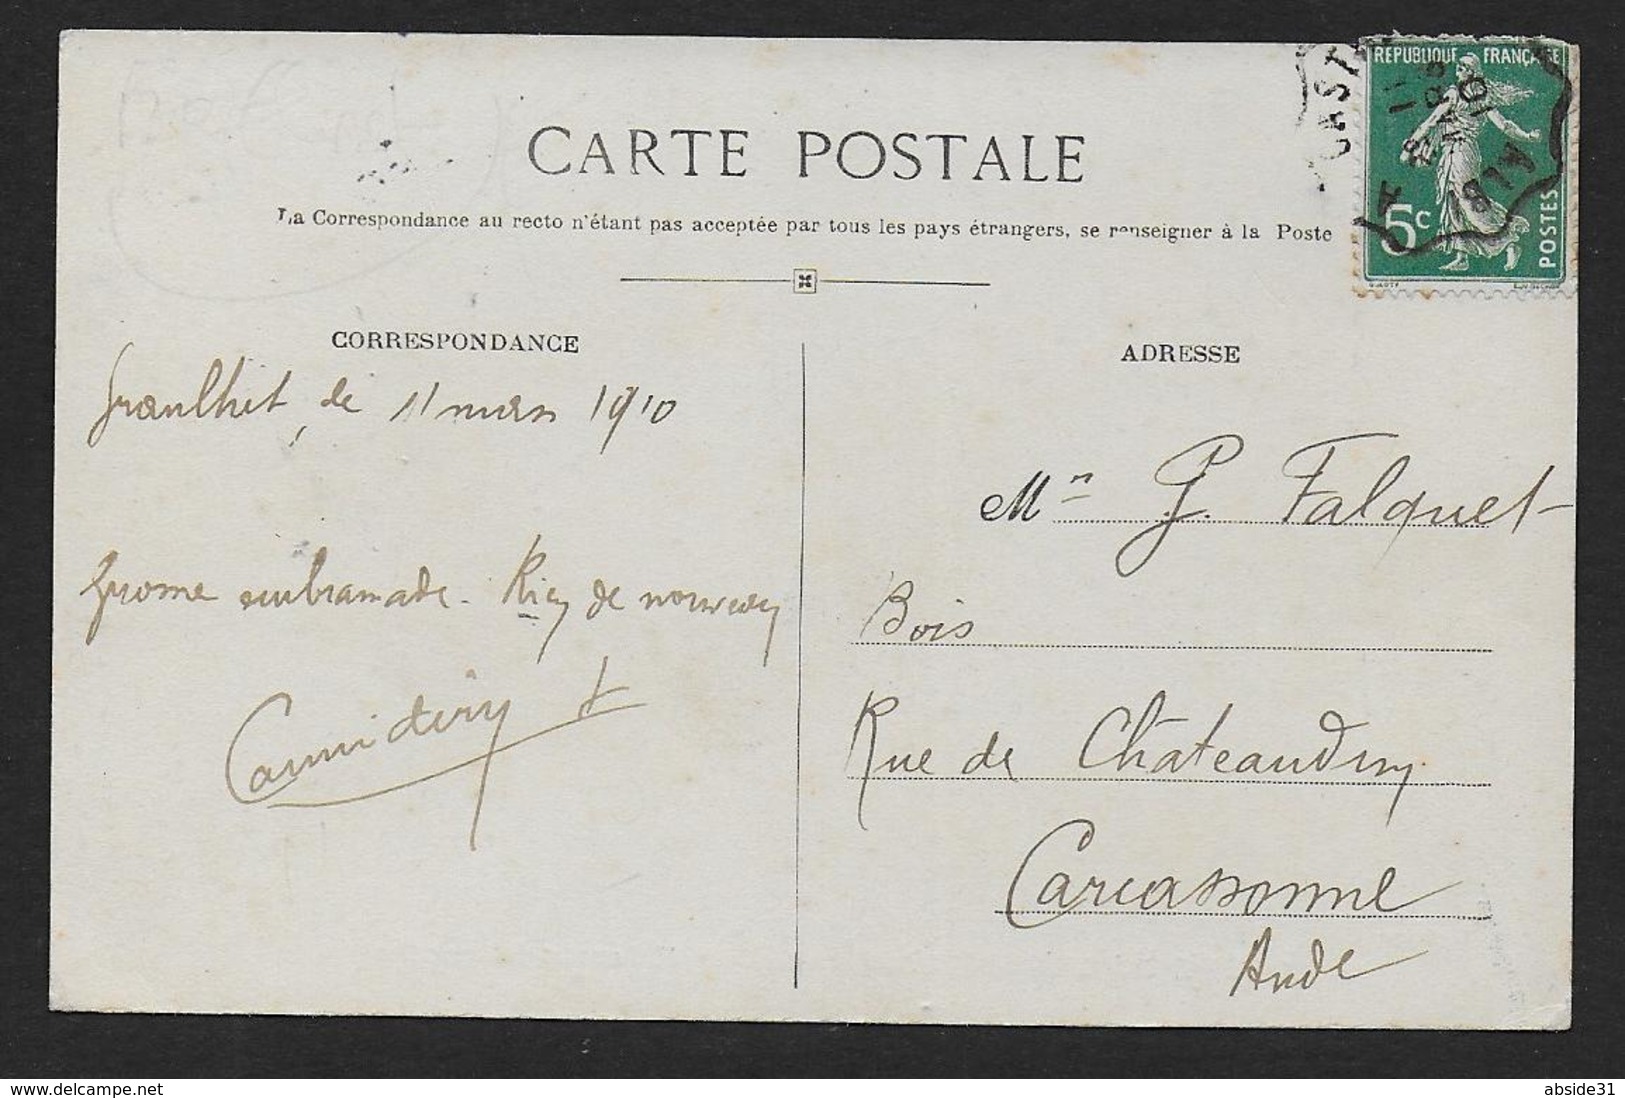 CARTE POSTALE
La Correspondance au recto n'étant pas acceptée par tous les pays étrangers, se renseigner à la Poste
RÉPUBLIQUE FRANÇAISE
5c
POSTES
CAST
A
ALBI
11
MARS
10
CORRESPONDANCE
Graulhet, le 11 mars 1910
embramade. Rien de nouveau
ADRESSE
Mr G. Falquet
Bois
Rue de Chateaudun
Carcassonne
Aude
delcampe.net
abside31